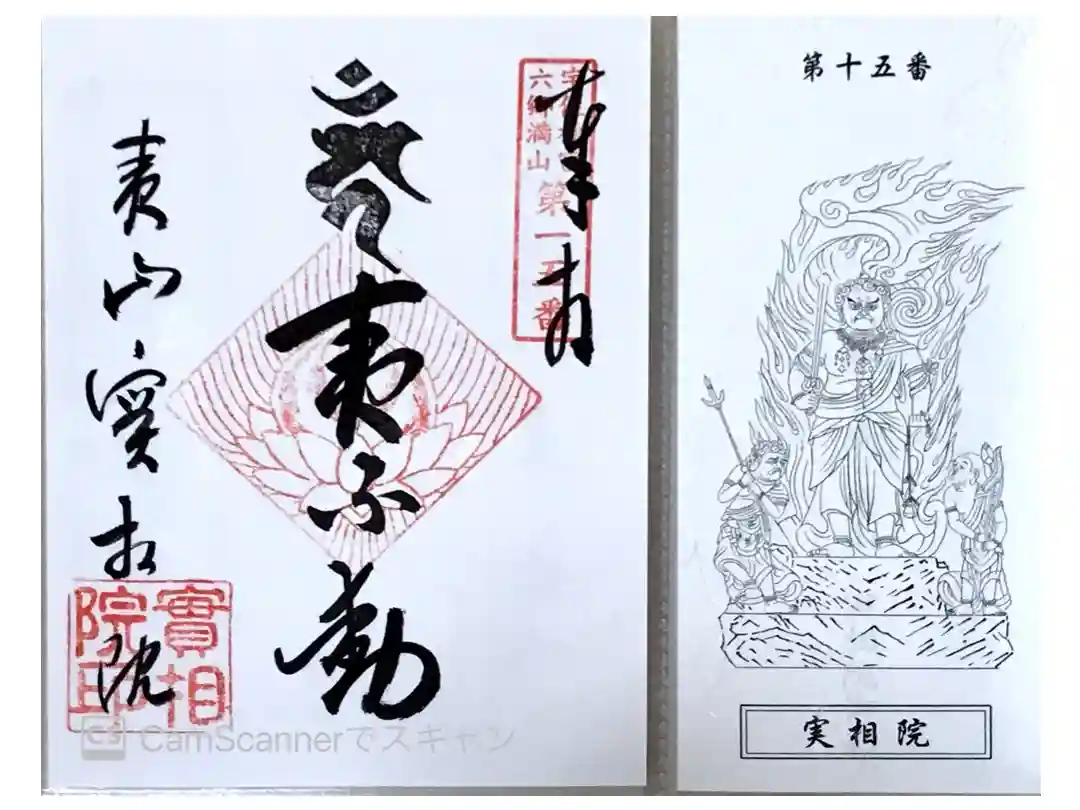 奉拝
六郷満山
第一五番
夷不動
夷山實相院
實相院印
第十五番
実相院
CamScannerでスキャン